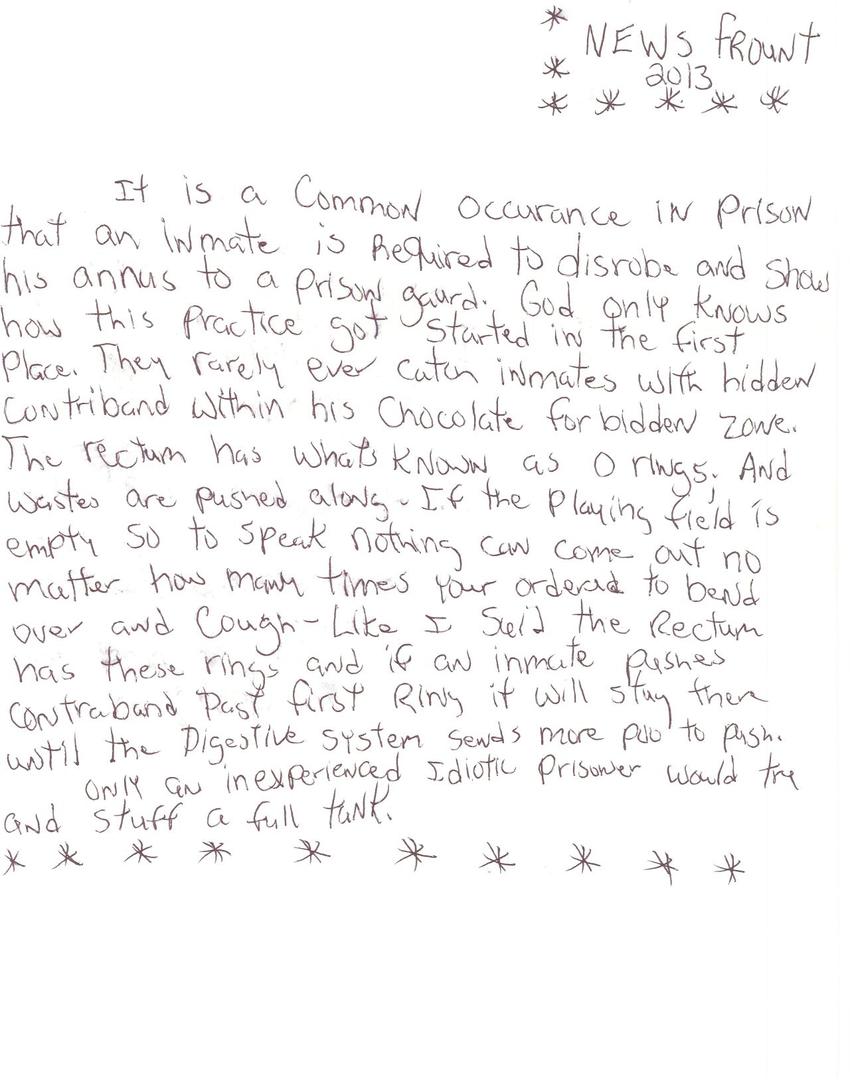 * NEWS fROUNT
* 2013
* * * * *
It is a Common Occurance in Prison
that an inmate is Required to disrobe and show
his annus to a prison gaurd. God only knows
how this practice got started in the first
Place. They rarely ever catch inmates with hidden
Contriband within his Chocolate forbidden zone.
The rectum has whats known as O rings. And
wastes are pushed along. If the playing field is
empty so to speak nothing can come out no
matter how many times your ordered to bend
over and Cough - Like I Said the Rectum
has these rings and if an inmate pushes
contraband past first Ring it will stay there
until the Digestive system sends more poo to push.
only an inexperienced Idiotic prisoner would try
and stuff a full tank.
* * * * * * * * * *